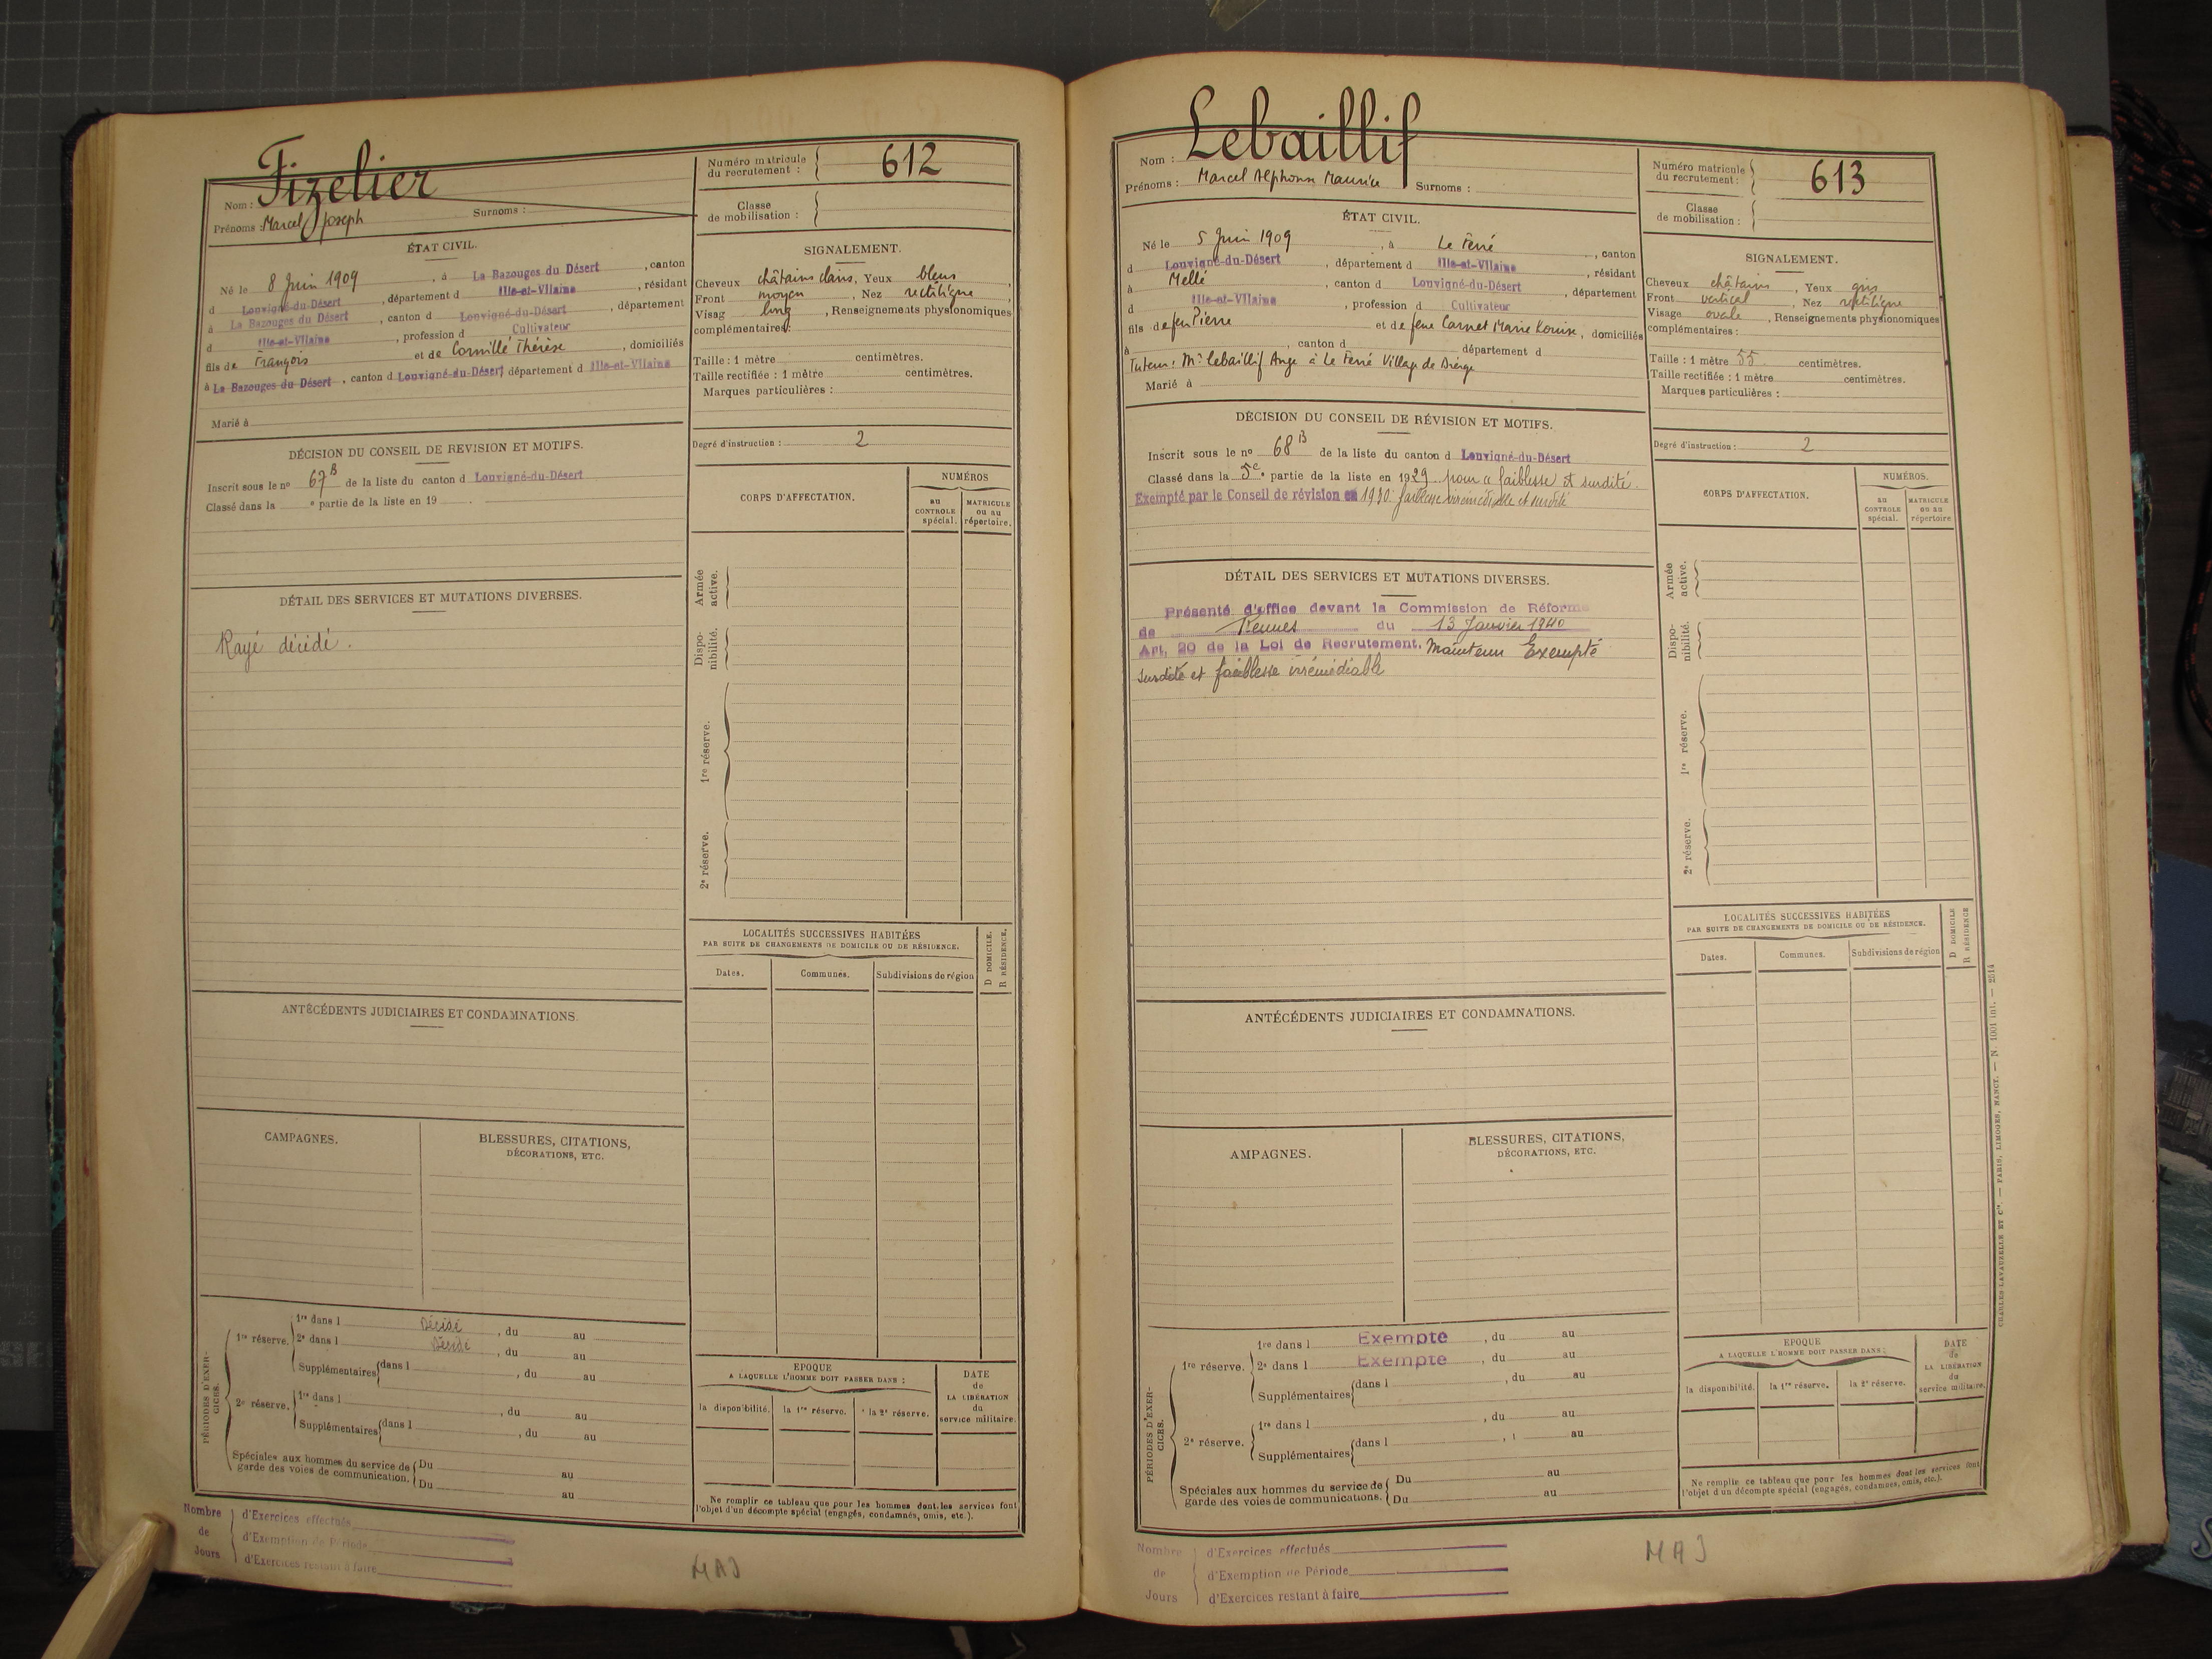 Fizelier
Nom :
Prénoms : Marcel Joseph Surnoms :
Numéro matricule du recrutement : 612
Classe de mobilisation :
ÉTAT CIVIL.
Né le 8 Juin 1909, à La Bazouges du Désert, canton
d Louvigné-du-Désert, département d Ille-et-Vilaine, résidant
à La Bazouges du Désert, canton d Louvigné-du-Désert, département
d Ille-et-Vilaine, profession d Cultivateur
fils de François et de Cornillé Thérèse, domiciliés
à La Bazouges du Désert, canton d Louvigné-du-Désert département d Ille-et-Vilaine
Marié à
SIGNALEMENT.
Cheveux châtains clairs, Yeux bleus,
Front moyen, Nez rectiligne,
Visag long, Renseignements physionomiques
complémentaires:
Taille : 1 mètre centimètres.
Taille rectifiée : 1 mètre centimètres.
Marques particulières :
Degré d'instruction : 2
DÉCISION DU CONSEIL DE REVISION ET MOTIFS.
Inscrit sous le no 67 B de la liste du canton d Louvigné-du-Désert
Classé dans la e partie de la liste en 19
DÉTAIL DES SERVICES ET MUTATIONS DIVERSES.
Rayé décédé.
CORPS D'AFFECTATION.
NUMÉROS
au CONTROLE spécial.
MATRICULE ou au répertoire.
Armée active.
Dispo-nibilité.
1re réserve.
2e réserve.
LOCALITÉS SUCCESSIVES HABITÉES
PAR SUITE DE CHANGEMENTS DE DOMICILE OU DE RÉSIDENCE.
D DOMICILE.
R RÉSIDENCE.
Dates. Communes. Subdivisions de région
ANTÉCÉDENTS JUDICIAIRES ET CONDAMNATIONS
CAMPAGNES.
BLESSURES, CITATIONS,
DÉCORATIONS, ETC.
PÉRIODES D'EXER-CICES.
1re réserve.
1re dans l Décédé, du au
2e dans l Décédé, du au
Supplémentaires dans l, du au
2e réserve.
1re dans l, du au
Supplémentaires dans l, du au
Spéciales aux hommes du service de
garde des voies de communication.
Du au
Du au
EPOQUE
A LAQUELLE L'HOMME DOIT PASSER DANS :
la disponibilité. la 1re réserve. la 2e réserve.
DATE de LA LIBÉRATION du service militaire.
Ne remplir ce tableau que pour les hommes dont les services font
l'objet d'un décompte spécial (engagés, condamnés, omis, etc.).
Nombre de Jours
d'Exercices effectués
d'Exemption de Période
d'Exercices restant à faire
MAJ
Nom : Lebaillif
Prénoms : Marcel Alphonse Maurice Surnoms :
Numéro matricule du recrutement : 613
Classe de mobilisation :
ÉTAT CIVIL.
Né le 5 Juin 1909, à Le Ferré, canton
d Louvigné-du-Désert, département d Ille-et-Vilaine, résidant
à Mellé, canton d Louvigné-du-Désert, département
d Ille-et-Vilaine, profession d Cultivateur
fils de feu Pierre et de feue Carnet Marie Louise, domiciliés
à, canton d département d
Tuteur : Mr Lebaillif Ange à Le Ferré Village de
Marié à
SIGNALEMENT.
Cheveux châtains, Yeux gris
Front vertical, Nez rectiligne
Visage ovale, Renseignements physionomiques
complémentaires :
Taille : 1 mètre 55 centimètres.
Taille rectifiée : 1 mètre centimètres.
Marques particulières :
Degré d'instruction : 2
DÉCISION DU CONSEIL DE RÉVISION ET MOTIFS.
Inscrit sous le no 68 B de la liste du canton d Louvigné-du-Désert
Classé dans la 5e partie de la liste en 1929 pour faiblesse et surdité.
Exempté par le Conseil de révision en 1930. faiblesse irrémédiable et surdité
DÉTAIL DES SERVICES ET MUTATIONS DIVERSES.
Présenté d'office devant la Commission de Réforme
de Rennes du 13 Janvier 1940
Art. 20 de la Loi de Recrutement. Maintenu Exempté
surdité et faiblesse irrémédiable
CORPS D'AFFECTATION.
NUMÉROS.
au CONTROLE spécial.
MATRICULE ou au répertoire
Armée active.
Dispo-nibilité.
1re réserve.
2e réserve.
LOCALITÉS SUCCESSIVES HABITÉES
PAR SUITE DE CHANGEMENTS DE DOMICILE OU DE RÉSIDENCE.
D DOMICILE
R RÉSIDENCE
Dates. Communes. Subdivisions de région
ANTÉCÉDENTS JUDICIAIRES ET CONDAMNATIONS.
AMPAGNES.
BLESSURES, CITATIONS,
DÉCORATIONS, ETC.
PÉRIODES D'EXER-CICES.
1re réserve.
1re dans l Exempte, du au
2e dans l Exempte, du au
Supplémentaires dans l, du au
2e réserve.
1re dans l, du au
Supplémentaires dans l au
Spéciales aux hommes du service de
garde des voies de communications.
Du au
Du au
EPOQUE
A LAQUELLE L'HOMME DOIT PASSER DANS :
la disponibilité. la 1re réserve. la 2e réserve.
DATE de LA LIBÉRATION du service militaire.
Ne remplir ce tableau que pour les hommes dont les services font
l'objet d'un décompte spécial (engagés, condamnés, omis, etc.).
CHARLES-LAVAUZELLE ET Cie. — PARIS, LIMOGES, NANCY. — N. 1001 int. — 2514
Nombre de Jours
d'Exercices effectués
d'Exemption de Période
d'Exercices restant à faire
MAJ